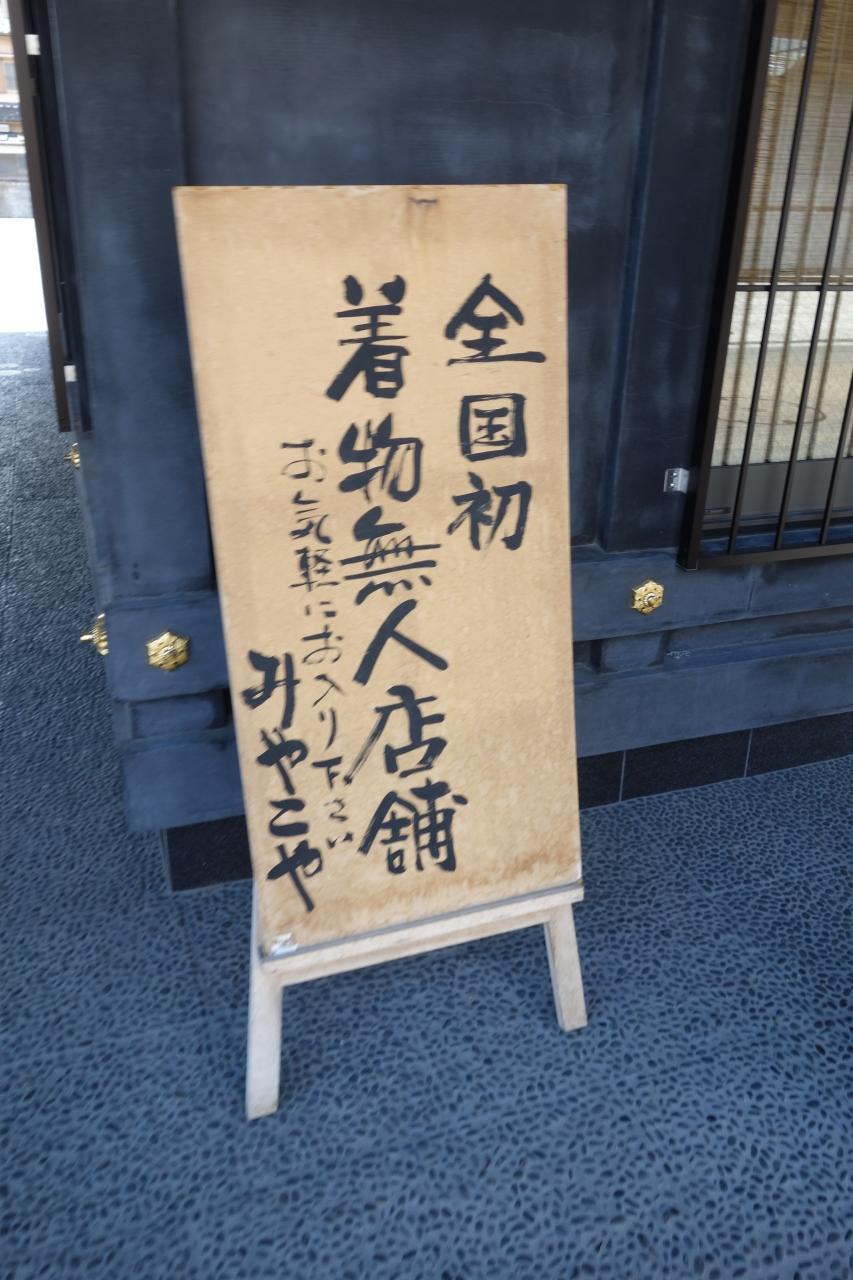 全国初
着物無人店舗
お気軽にお入り下さい
みやこや